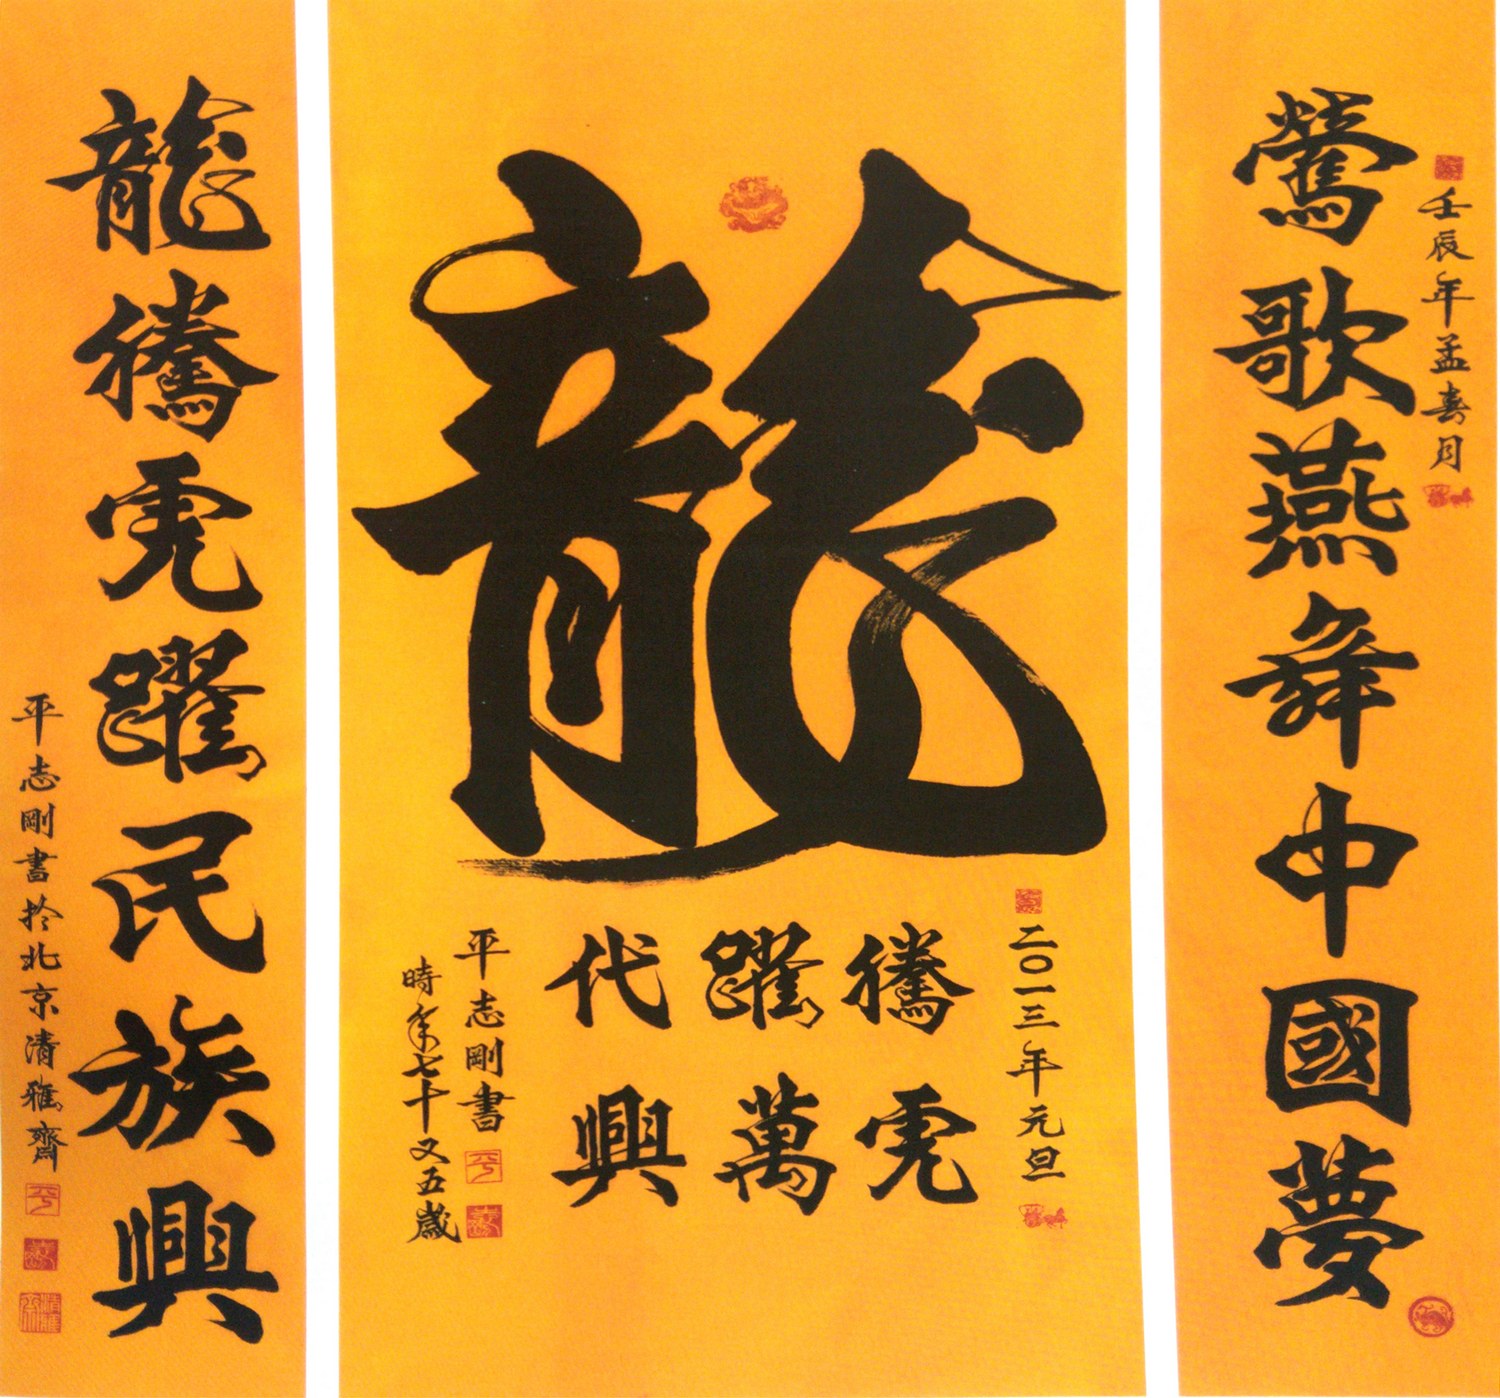 壬辰年孟春月
鶯歌燕舞中國夢
龍
二〇一三年元旦
騰虎
躍萬
代興
平志剛書
時年七十又五歲
龍騰虎躍民族興
平志剛書扵北京清雅齋